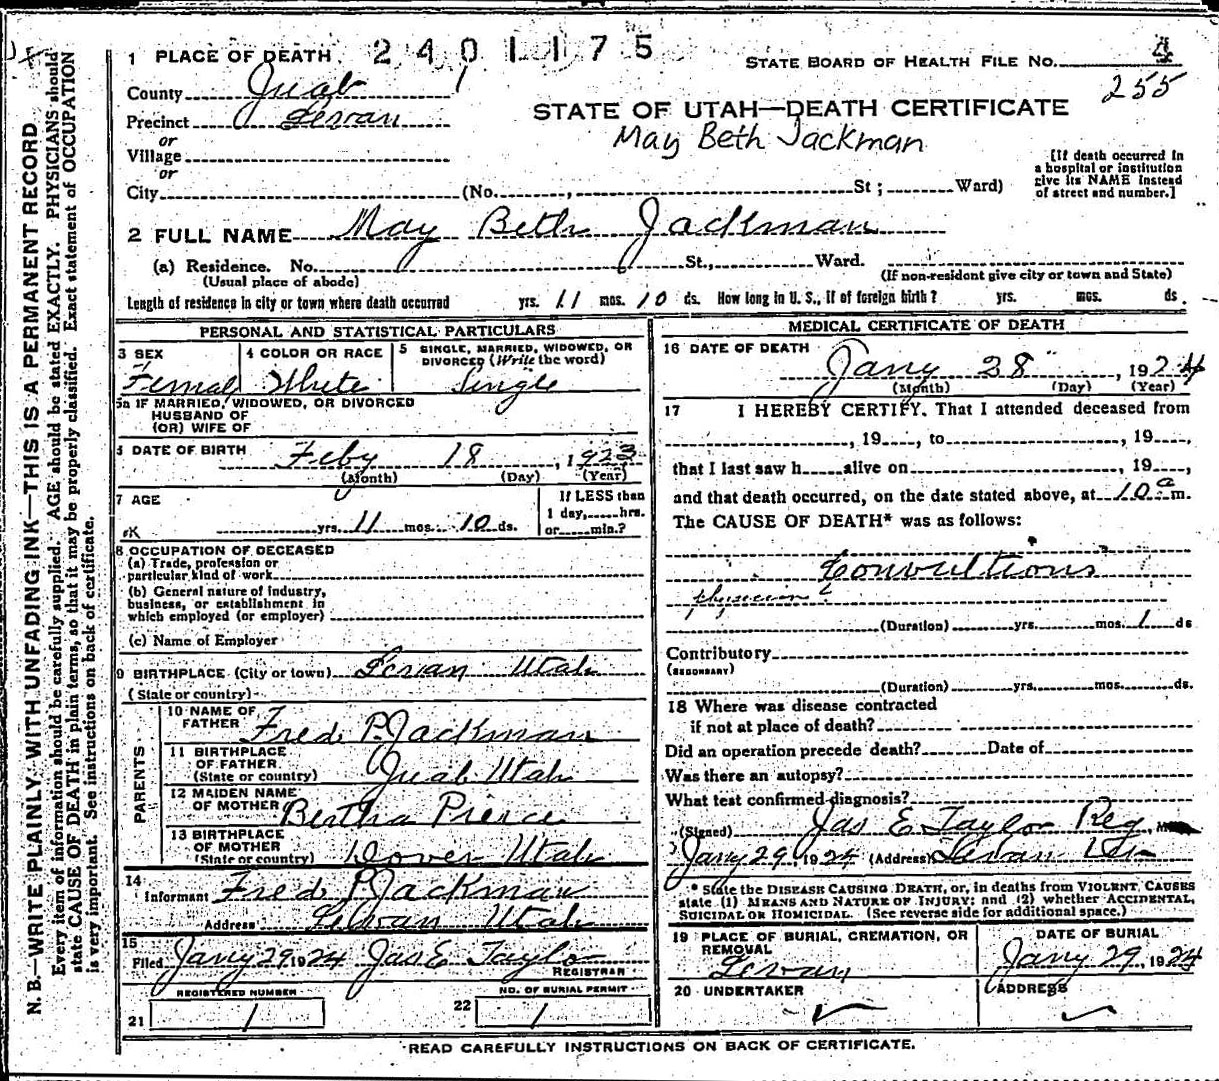 1 PLACE OF DEATH 2401175
STATE BOARD OF HEALTH FILE No.
County Juab 1
255
Precinct Levan
STATE OF UTAH—DEATH CERTIFICATE
or
May Beth Jackman
Village
or
City (No. , St ; Ward)
[If death occurred in
a hospital or institution
give its NAME instead
of street and number.]
2 FULL NAME May Beth Jackman
(a) Residence. No. St., Ward.
(Usual place of abode) (If non-resident give city or town and State)
Length of residence in city or town where death occurred yrs. 11 mos. 10 ds. How long in U. S., if of foreign birth? yrs. mos. ds.
PERSONAL AND STATISTICAL PARTICULARS
3 SEX 4 COLOR OR RACE 5 SINGLE, MARRIED, WIDOWED, OR
DIVORCED (Write the word)
Femal White Single
5a IF MARRIED, WIDOWED, OR DIVORCED
HUSBAND OF
(OR) WIFE OF
DATE OF BIRTH Feby 18, 1923
(Month) (Day) (Year)
7 AGE If LESS than
1 day, hrs.
yrs. 11 mos. 10 ds. or min.?
8 OCCUPATION OF DECEASED
(a) Trade, profession or
particular kind of work
(b) General nature of industry,
business, or establishment in
which employed (or employer)
(c) Name of Employer
9 BIRTHPLACE (City or town) Levan Utah
(State or country)
PARENTS
10 NAME OF
FATHER Fred P. Jackman
11 BIRTHPLACE
OF FATHER
(State or country) Juab Utah
12 MAIDEN NAME
OF MOTHER Bertha Pierce
13 BIRTHPLACE
OF MOTHER
(State or country) Dover Utah
14
Informant Fred P. Jackman
Address Levan Utah
15
Filed Jany 29 1924 Jas E Taylor
REGISTRAR
REGISTERED NUMBER NO. OF BURIAL PERMIT
21 1 22 1
MEDICAL CERTIFICATE OF DEATH
16 DATE OF DEATH
Jany 28, 1924
(Month) (Day) (Year)
17 I HEREBY CERTIFY, That I attended deceased from
, 19 , to , 19 ,
that I last saw h alive on , 19 ,
and that death occurred, on the date stated above, at 10 a m.
The CAUSE OF DEATH* was as follows:
Convultions
physician?
(Duration) yrs. mos. 1 ds
Contributory
(SECONDARY)
(Duration) yrs. mos. ds.
18 Where was disease contracted
if not at place of death?
Did an operation precede death? Date of
Was there an autopsy?
What test confirmed diagnosis?
(Signed) Jas E Taylor Reg
Jany 29, 1924 (Address) Levan
* State the DISEASE CAUSING DEATH, or, in deaths from VIOLENT CAUSES
state (1) MEANS AND NATURE OF INJURY; and (2) whether ACCIDENTAL,
SUICIDAL OR HOMICIDAL. (See reverse side for additional space.)
19 PLACE OF BURIAL, CREMATION, OR
REMOVAL
Levan
DATE OF BURIAL
Jany 29, 1924
20 UNDERTAKER ADDRESS
READ CAREFULLY INSTRUCTIONS ON BACK OF CERTIFICATE.
N. B.—WRITE PLAINLY, WITH UNFADING INK—THIS IS A PERMANENT RECORD
Every item of information should be carefully supplied. AGE should be stated EXACTLY. PHYSICIANS should
state CAUSE OF DEATH in plain terms, so that it may be properly classified. Exact statement of OCCUPATION
is very important. See instructions on back of certificate.